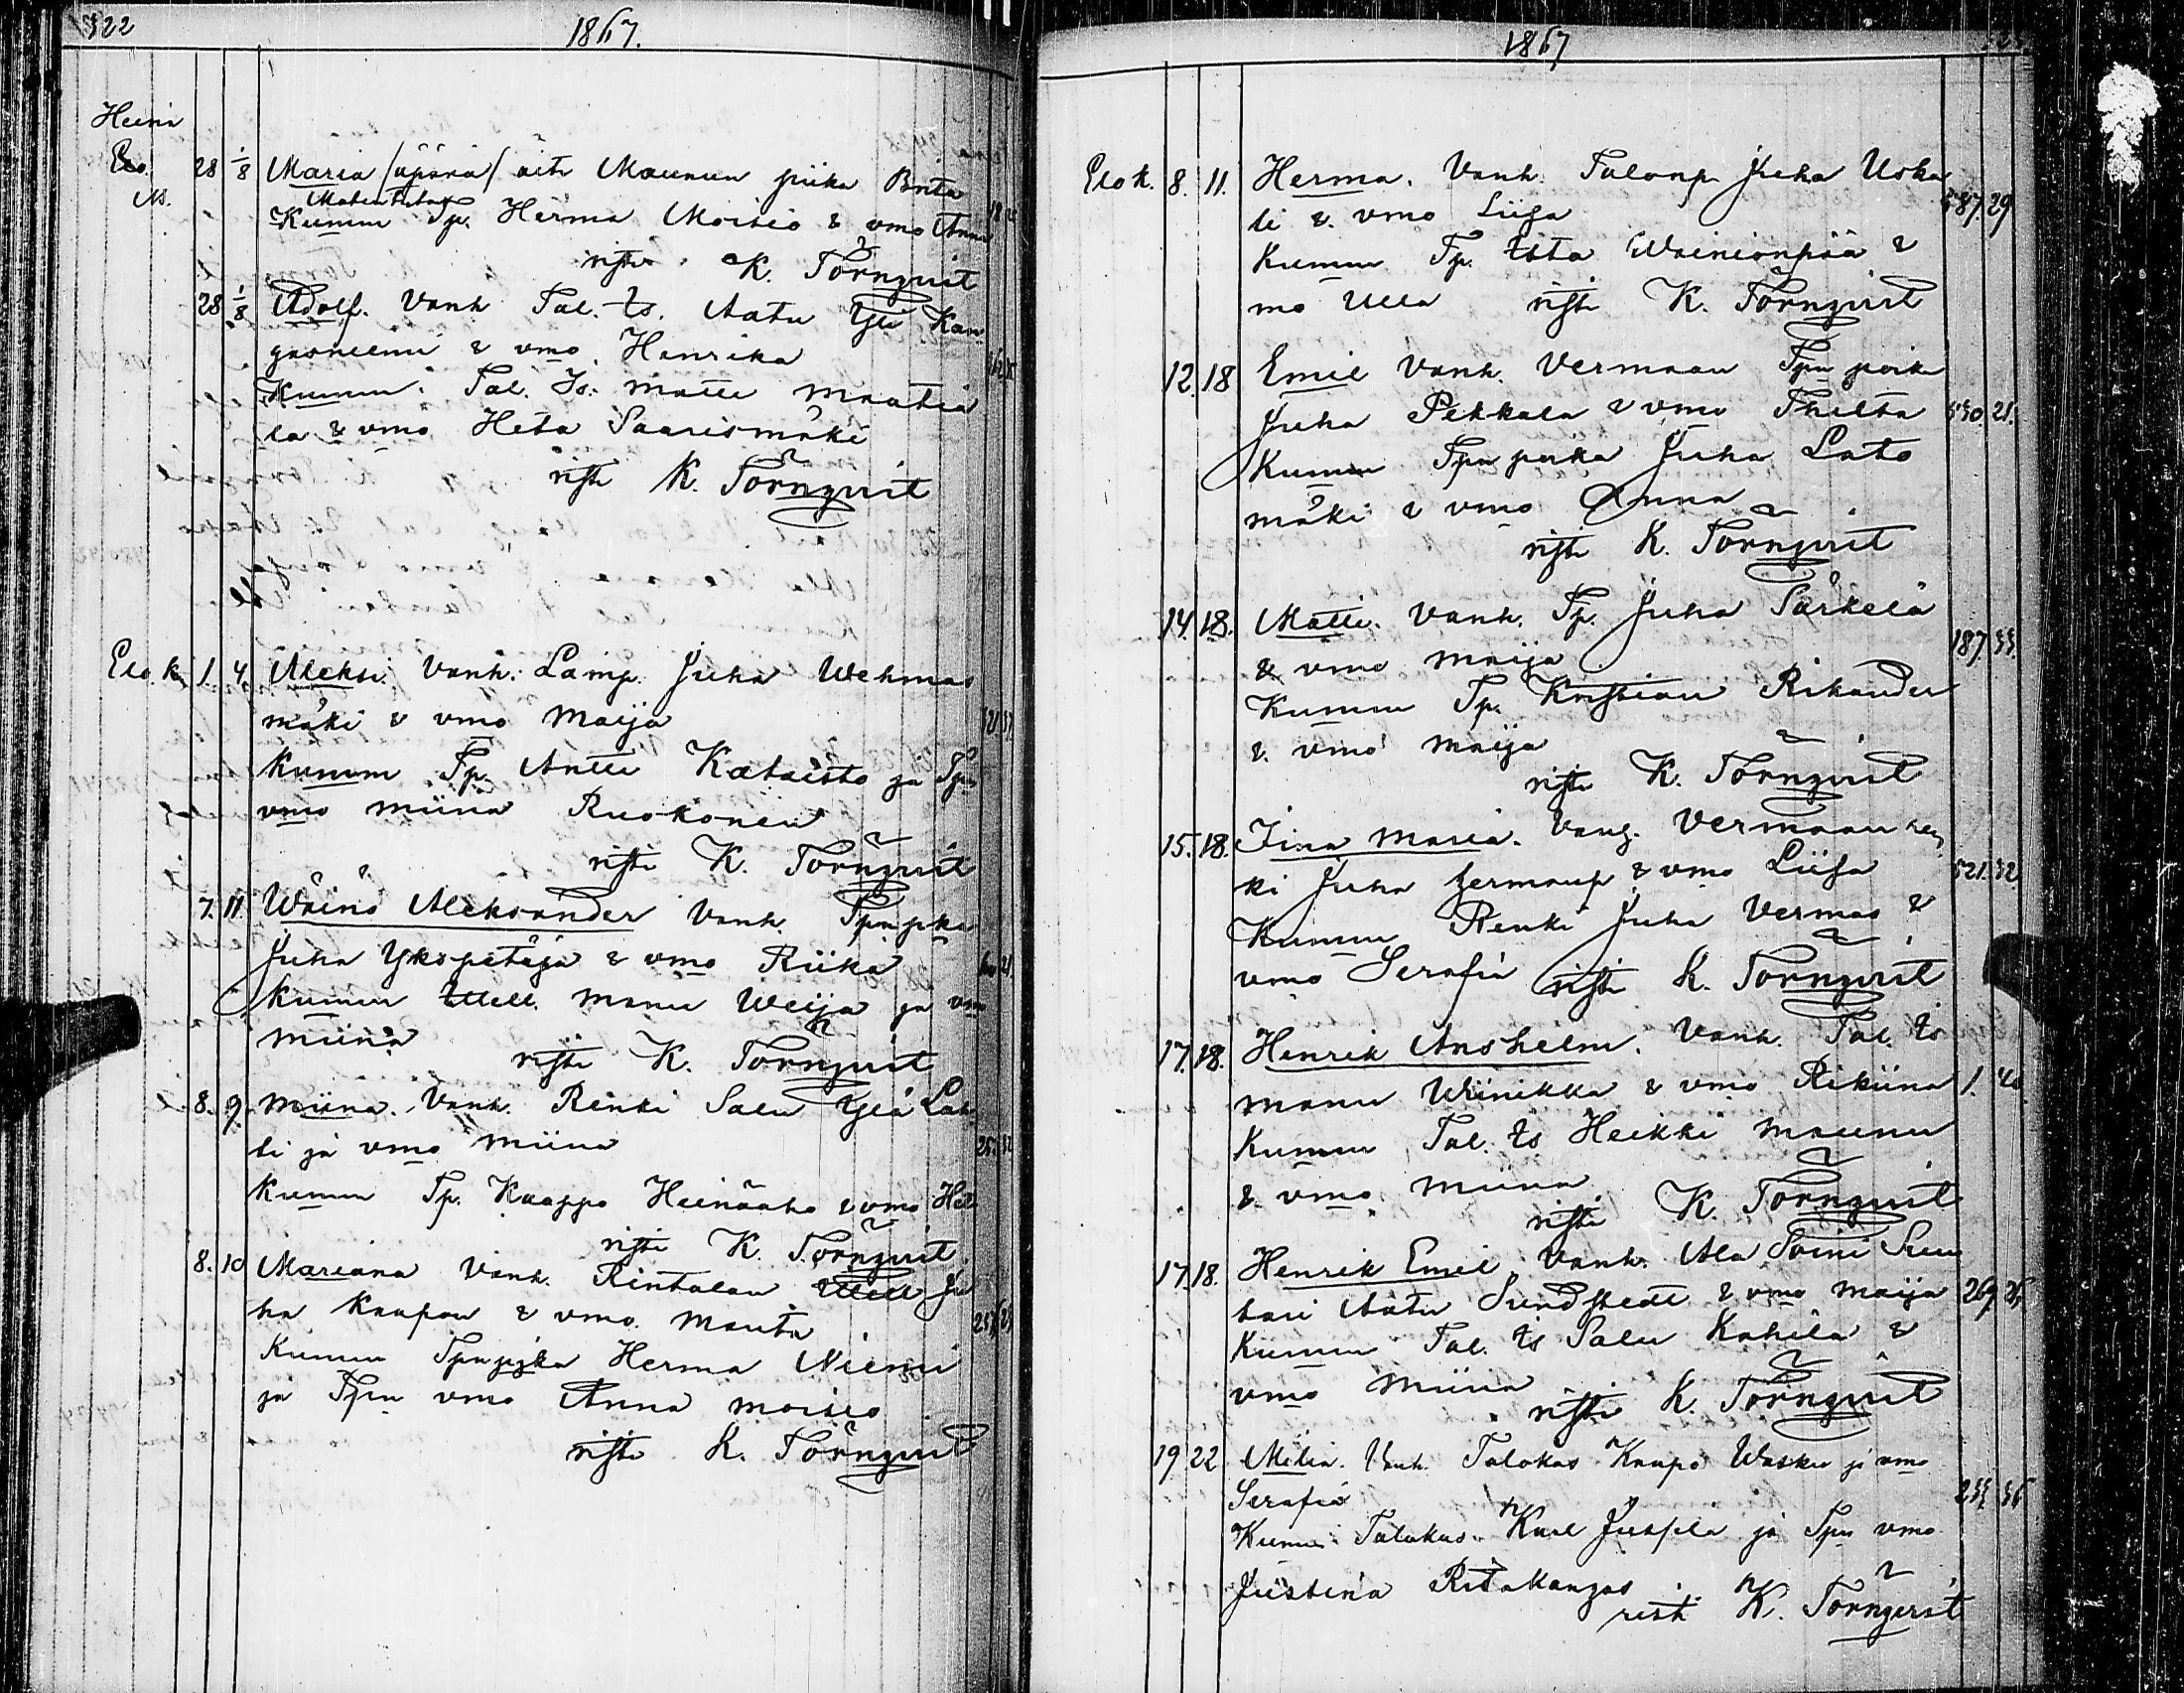 322
1867.
Heinä
Elo. 28 1/8 Maria /äpärä/ äiti Maunun piika Brita
Kummi Tp. Herma Moisio & vmo Anna
risti K. Törnqvist
28 1/8 Adolf. Vanh Tal. Is. Aatu Yli Kan
gasniemi & vmo. Henrika
Kummi. Tal. Is. Matti Maatia
la & vmo Heta Saarismäki
risti K. Törnqvist
Elo. k. 1. 4. Aleksi Vanh. Lamp. Juha Wehmas
mäki & vmo Maija
Kummi Tp. Antti Kataisto ja Tpn
vmo Miina Ruokonen
risti K. Törnqvist
7. 11. Wäinö Aleksander Vanh. Tpn pka
Juha Ykspetäjä & vmo Riika
Kummi Itell. Manu Weija ja vmo
Miina
risti K. Törnqvist
8. 9. Miina. Vanh. Renki Salu Ylä Lah
ti ja vmo Miina
Kummi Tp. Kaappo Heinäaho & vmo
risti K. Törnqvist
8. 10 Mariana Vanh. Rintalan Itell Ju
ha Kaapon & vmo. Manta
Kummi Tpn pjka Herma Niemi
ja Tpn vmo Anna Moisio
risti K. Törnqvist
1867
Elo k. 8. 11. Herma. Vanh. Talonp. Juha Uska
li & vmo Liisa 587. 29
Kummi Tp. Esta Wainionpää &
mo Ulla risti K. Törnqvist
12. 18 Emil Vanh. Vermaan Tpn poika
Juha Pekkala & vmo Thilta 530. 21.
Kummi Tpn poika Juha Lato
mäki & vmo Anna
risti K. Törnqvist
14. 18. Matti. Vanh. Tp. Juha Särkelä
& vmo Maija 187. 33.
Kummi Tp. Kristian Rikander
& vmo Maija
risti K. Törnqvist
15. 18. Fina Maria. Vanh. Vermaan ren
ki Juha & vmo Liisa 521. 32
Kummi Renki Juha Vermas &
vmo Serafia risti K. Törnqvist
17. 18. Henrik Anshelm. Vanh. Tal. Is
Manu Wiinikka & vmo Rikiina 1. 40
Kummi Tal. Is Heikki Maunu
& vmo Miina
risti K. Törnqvist
17. 18. Henrik Emil Vanh. Ala Soini Suu
tari Aatu Sundstedt & vmo Maija 269
Kummi Tal. Is Salu Kahila &
vmo Miina risti K. Törnqvist
19 22 Milia. Vanh. Talokas Kaapo Wasku ja vmo
Serafia 233 36
Kummi. Talokas. Karl Juspla ja Tpn vmo
Justina Ritakangas
risti K. Törnqvist